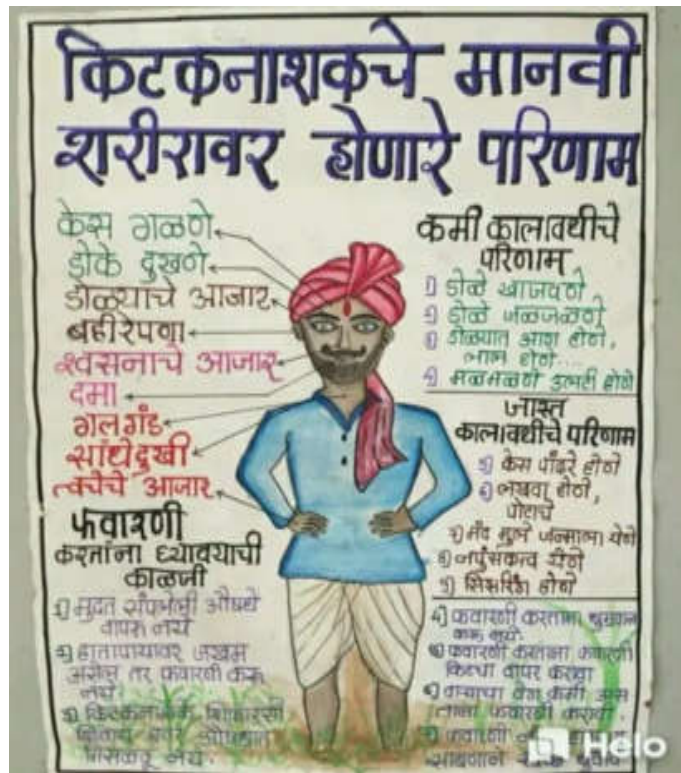 किटकनाशकचे मानवी
शरीरावर होणारे परिणाम
केस गळणे
डोके दुखणे
डोळ्याचे आजार
बहीरेपणा
श्वसनाचे आजार
दमा
गलगंड
सांधेदुखी
त्वचेचे आजार
फवारणी
करतांना घ्यावयाची
काळजी
1) मुदत संपलेली औषधे
वापरू नये
2) हातापायावर जखम
असेल तर फवारणी करू
नये
3) किटकनाशके
कमी कालावधीचे
परिणाम
1) डोळे खाजवणे
2) डोळे जळजळणे
3) डोळ्यात आग होणे,
लाल होणे....
4) मळमळणे उलटी होणे
जास्त
कालावधीचे परिणाम
केस पांढरे होणे
लखवा होणे,
पोटाचे
मंद मुले जन्माला येणे
नपुंसकत्व येणे
4) फवारणी करताना
करू नये.
फवारणी करताना फवारणी
किटचा वापर करावा
वाऱ्याचा वेग कमी
फवारणी करावी.
फवारणी
साबणाने
Helo